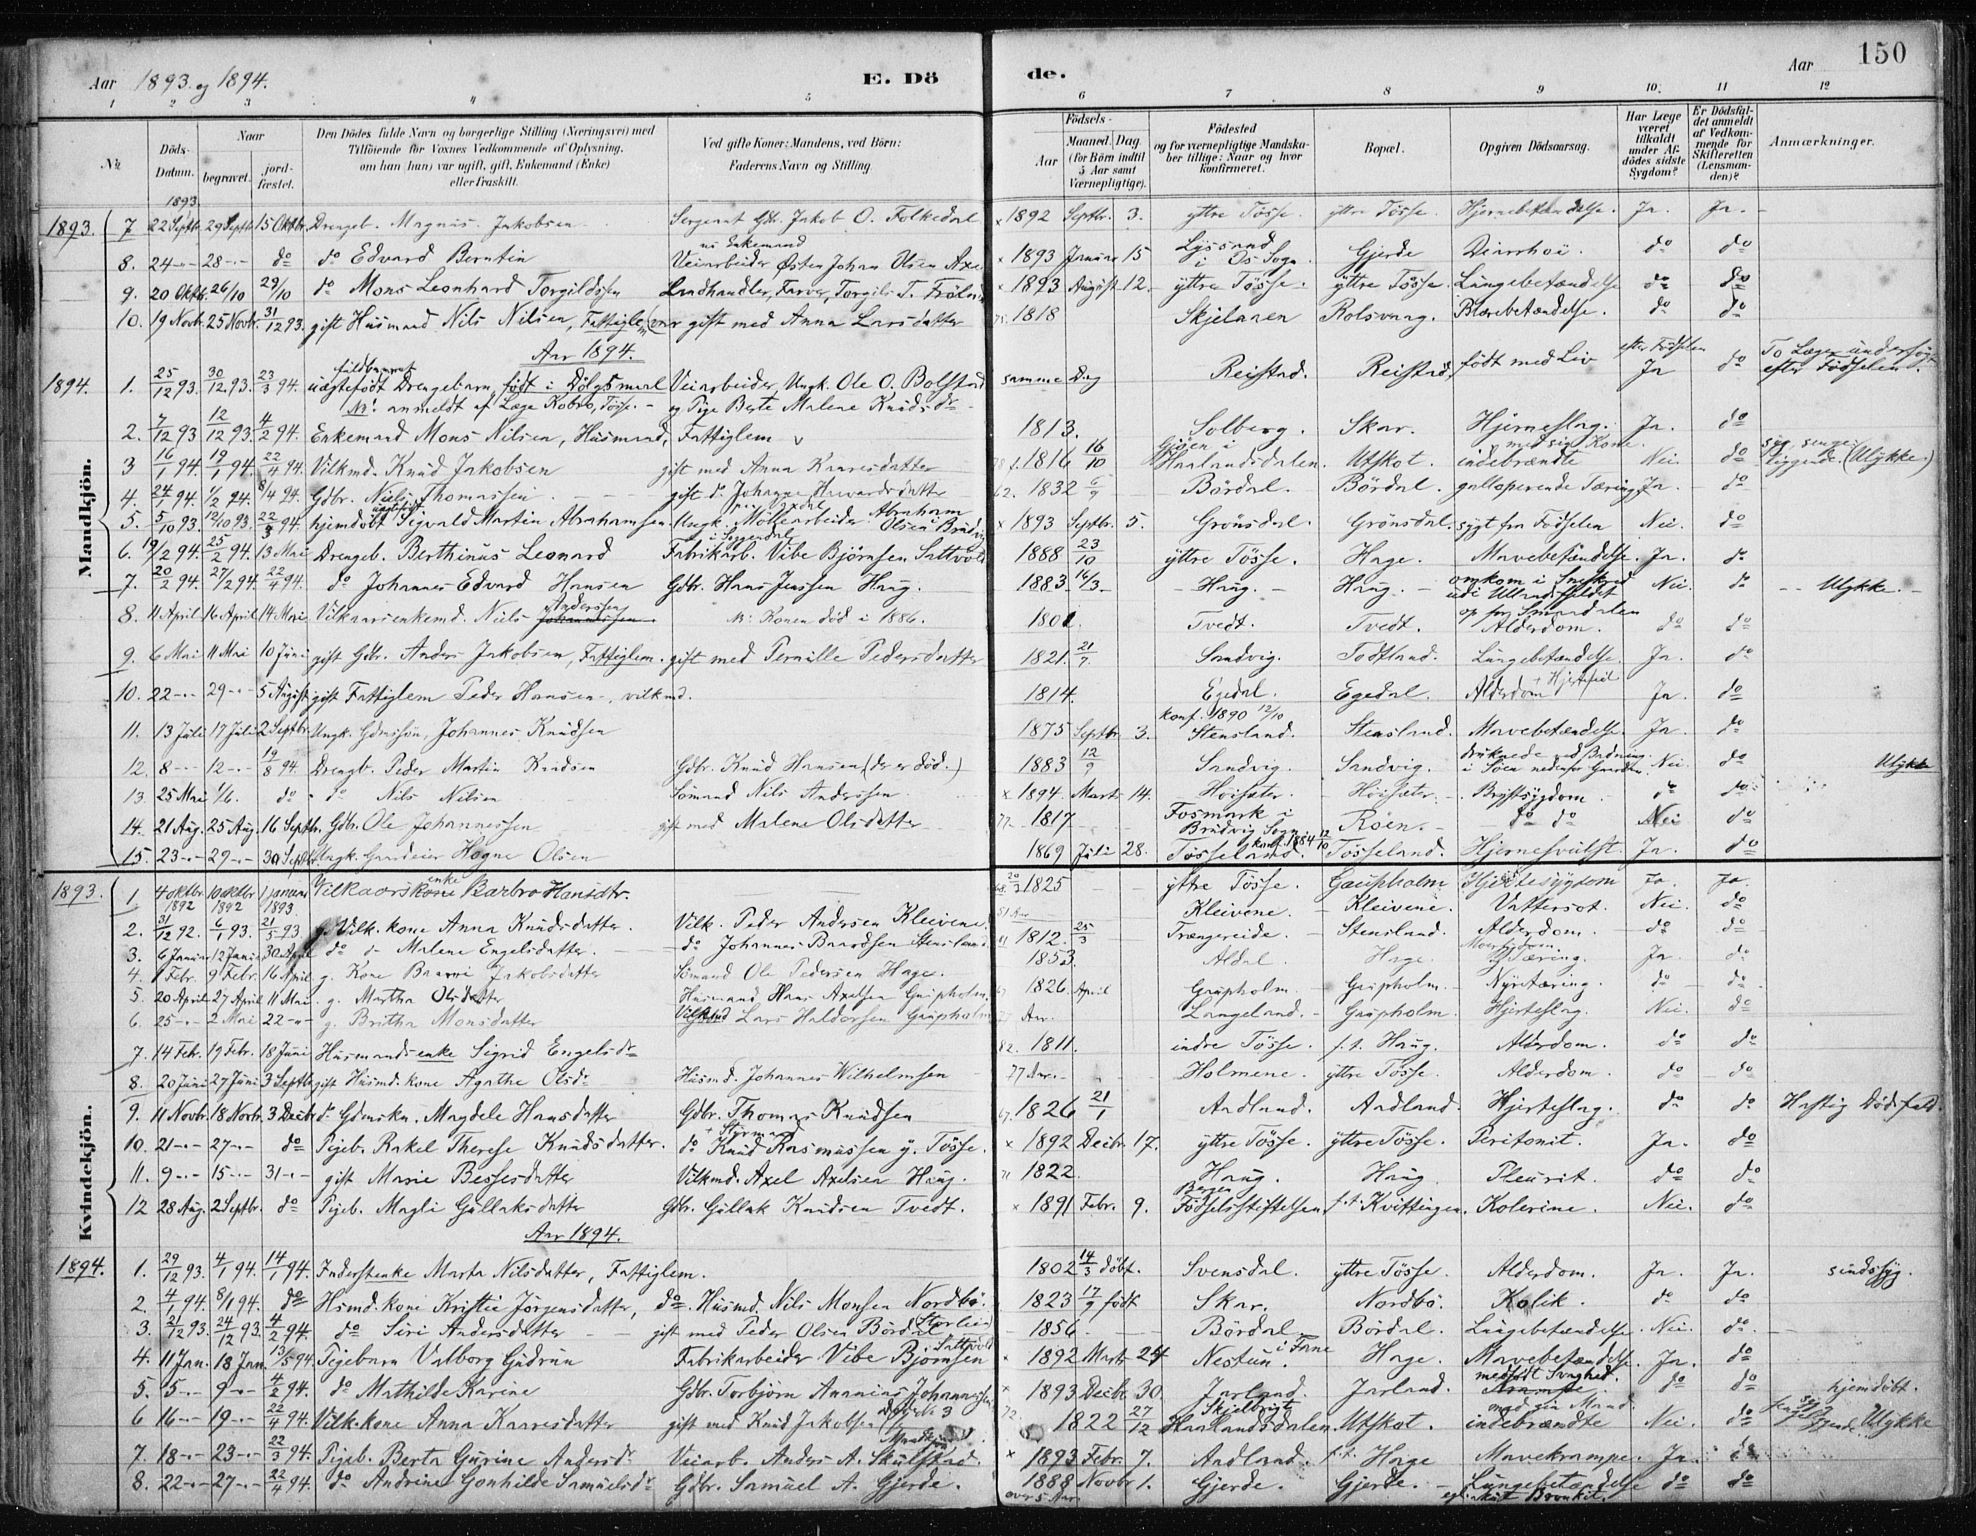 Aar 1893. og 1894. E. Dö de. Aar 150
1 2 3 4 5 6 7 8 9 10. 11 12
№ Döds-Datum. Naar begravet. jord-fæstet. Den Dödes fulde Navn og borgerlige Stilling (Næringsvei) med Tilföiende för Voxnes Vedkommende af Oplysning, om han (hun) var ugift, gift, Enkemand (Enke) eller fraskilt. Ved gifte Koner: Mandens, ved Börn: Faderens Navn og Stilling. Födsels- Aar Maaned. Dag (for Börn indtil 5 Aar samt Værnepligtige). Födested og for værnepligtige Mandskaber tillige: Naar og hvor konfirmeret. Bopæl. Opgiven Dödsaarsag. Har Læge været tilkaldt under Afdödes sidste Sygdom? Er Dödsfaldet anmeldt af Vedkommende for Skifteretten (Lensmanden)? Anmærkninger.
1893.
Mandkjön.
1893. 7 22 Septbr. 29 Septbr. 15 Oktbr. Drengeb. Magnus Jakobsen Sergeant Gbr. Jakob O. Folkedal × 1892 Septbr. 3. yttre Tösse. yttre Tösse. Hjernebetændelse. Ja. Ja.
8. 24 -- 28 -- do do Edvard Berntin Veiarbeider Östen Johan Olsen Axe nu Enkemand × 1893 Januar 15 Lyssand i Os Sogn. Gjerde Diarrhoi. do do
9. 20 Oktb. 26/10 29/10 do Mons Leonhard Torgildssen Landhandler, Farver, Torgils T. × 1893 August 12. yttre Tösse. yttre Tösse. Lungebetændelse do do
10. 19 Novb. 25 Novb. 31/12 93. gift Husmand Nils Nilsen, Fattiglem gift med Anna Larsdatter 1818 Skjelaren Rolsvaag. Blærebetændelse. do do
Aar 1894.
1894. 1. 25/12 93. 30/12 93. 23/3 94. uægtefödt Drengebarn, födt i Dölgsmaal Veiarbeider, Ungk. Ole O. Bolstad samme Dag Reistad. Reistad. födt med Liv efter Födselen Ja do To Læger undersögt efter Födselen.
Nr! anmeldt af Læge Kobro, Tösse. og Pige Berte Malene Knudsdr
2. 7/12 93 12/12 93. 4/2 94. Enkemand Mons Nilsen, Husmand, Fattiglem 1813. Solberg. Skar. Hjerneslag. Ja. do
3 16/1 94. 19/1 94. 22/4 94. Vilkmd. Knud Jakobsen gift med Anna Knaresdatter 1816 16/10 Gjöen i Haalandsdalen. Utskot. med sin Kone indebrændte Nei do syg, sengeliggende. (Ulykke.)
4. 24/1 94. 1/2 94. 8/4 94. Gbr. Niels Thomassen gift d. Johanne Haavardsdatter 62. 1832 6/9 Bördal. Bördal. galloperende Tæring Ja. do
5. 5/10 93. 12/10 93. 22/3 94. hjemdöbt uægtefödt Sigvald Martin Abrahamsen Ungk. Möllearbeider Abraham Olsen Brudvig × 1893 Septbr. 5. Grönsdal. Grönsdal. sygt fra Födselen Nei. do
6. 19/2 94. 25/2 94. 13 Mai Drengeb. Berthinus Leonard Fabrikarb. Vibe Björnsen Sattvold 1888 23/10 yttre Tösse. Hage. Mavebetændelse. Ja. do
7. 20/2 94. 27/2 94. 22/4 94. do Johannes Edvard Hansen Gbr. Hans Jensen Haug. 1883 14/3. Haug. Haug. omkom i Sneskred udi Ullandsfjeldet op for Smaadalen Nei. do Ulykke.
8. 11 April 16 April 14 Mai Vilkaarsenkemd. Niels Johannessen Anderssen Nr: Konen död i 1886. 1801 Tvedt. Tvedt. Alderdom. do do
9. 6 Mai 11 Mai 10 Juni gift Gbr. Anders Jakobsen, Fattiglem. gift med Pernille Pedersdatter 1821. 21/7. Sandvig. Todtland. Lungebetændelse Ja. do
10. 22 -- 29 -- 5 August gift Fattiglem Peder Hansen, vilkmd. 1814. Egedal. Egedal. Alderdom + Hjertefeil Ja. do
11. 13 Juli 17 Juli 2 Septbr. Ungk. Gdmssön, Johannes Knudsen 1875 Septbr. 3. konf. 1890 12/10 Stensland. Stensland. Mavebetændelse. Ja. do
12. 8 -- 12 -- 19/8 94. Drengb. Peder Martin Knudsen Gdbr. Knud Hansen (der er död.) 1883 12/9 Sandvig. Sandvig. druknede ved Badning i Söen nedenfor Gaarden Nei do Ulykke
13. 25 Mai 1/6. do do Nils Nilsen Sömand Nils Anderssen × 1894. Marts 14. Höisæter. Höisæter. Brystsygdom. do do
14. 21 Aug. 25 Aug. 16 Septbr. Gdbr. Ole Johannessen gift med Malene Olsdatter 77. 1817 Fosmark i Brudvig Sogn Röen. do do Nei do
15. 23 -- 29 -- 30 Septbr. Ungk. Gaardeier Hogne Olsen 1869 Juli 28. konf. 1884 12/10 Tösseland. Tösseland. Hjernesvulst. Ja. do
Kvindekjön.
1893. 1. 4 Oktbr. 1892 10 Oktbr 1892 1 Januar 1893. Vilkaarskone enke Barbro Hansdtr. 1825 yttre Tösse. Gaupholm Hjertesygdom Ja. Ja.
2. 31/12 92. 6/1 93. 21/5 93 g. Vilk. kone Anna Knudsdatter. Vilk. Peder Andersen Kleivene 51 Aar Kleivene. Kleivene. Vattersot. Nei. do
3. 6 Januar 12 Januar 30 April do Malene Engelsdatter. do Johannes Baardsen Stensland 1812. 25/3 Trængereide. Stensland. Alderdom. do do
4. 1 Febr. 9 Febr. 16 April g. Kone Jakobsdatter Sömand Ole Pedersen Hage. 1853. Aldal. Hage. Tæring. Ja. do
5. 20 April 27 April 11 Mai. g. Martha Olsdatter Husmand Hans Axelsen Gaupholm. 1826 April Gaupholm. Gaupholm. Nyretæring. do do
6. 25 -- 2 Mai 22 -- g. Britha Monsdatter Vilkmd Lars Haldorsen Gaupholm Aar. Langeland. Gaupholm. Hjerteslag. Nei. do
7. 14 Febr. 19 Febr. 18 Juni Husmandsenke Sigrid Engelsdr 82. 1811. indre Tösse. f.t. Haug. Alderdom. do do
8. 20 Juni 27 Juni 3 Septbr. gift Husmd. kone Agathe Olsdr Husmd. Johannes Wilhelmsen 77 Aar. Holmene. yttre Tösse. Alderdom. do do
9. 11 Novbr. 18 Novbr. 3 Decbr do Gdmskn. Magdele Hansdatter Gdbr. Thomas Knudsen 67. 1826 21/1 Aadland. Aadland. Hjerteslag. do do Hastig Dödsfald.
10. 21 -- 27 -- do Pigeb. Rakel Therese Knudsdatter. do + Styrmand Knud Rasmussen y. Tösse. × 1892 Decbr. 17. yttre Tösse. yttre Tösse. Peritonit. Ja. do
11. 9 -- 15 -- 31 -- gift Marie Bessesdatter Vilkmd. Axel Axelsen Haug. 71 1822. Haug. Haug. Pleurit. do do
12 28 Aug. 2 Septbr. do Pigeb. Magli Gullaksdatter Gdbr. Gullak Knudsen Tvedt. × 1891 Febr. 9. Bergen Födselsstiftelsen f.t. Kvittingen. Kolerine. Nei. do
Aar 1894.
1894. 1. 29/12 93. 4/1 94. 14/1 94. Inderstenke Marta Nilsdatter, Fattiglem. 1802 14/3 döbt. Svensdal. yttre Tösse. Alderdom. Ja. Ja. sindssyg.
2. 4/1 94. 8/1 94. do Hsmd. kone Kristie Jörgensdatter, do. Husmd. Nils Monsen Nordbö. 1823 17/9 födt Skar. Nordbö. Kolik. do do
3. 21/12 93. 24/12 93. 4/2 94. do Siri Andersdatter gift med Peder Olsen Bördal 1856 Bördal Bördal. Lungebetændelse. Nei. do
4. 11 Jan. 18 Jan. 13/5 94. Pigebarn Valborg Gudrun Fabrikarbeider Vibe Björnsen Sattvold × 1892 Marts 24 Nestun. i Fane Hage. Mavebetændelse. Ja. do
5. 5 -- 9 -- 4/2 94. do Mathilde Karine Gdbr. Torbjörn Ananias Johannessen × 1893 Decbr. 30. Jarland. Jarland. medfödt Svaghed. do do hjemdöbt.
6 16 -- 19 -- 22/4 94. Vilk. kone Anna Knaresdatter gift med Knud Jakobsen 72. 1822 27/12 Skjelbreit Haalandsdalen Utskot. med sin Mand. indebrændte Nei. do Ulykke
7. 18 -- 23 -- 22/3 94. Pigeb. Berta Gurine Andersdr Veiarb. Anders A. Skulstad. × 1893 Febr. 7. Aadland. f.t. Hage Mavekrampe. Ja. do
8. 22 -- 27 -- 22/4 94. do Andrine Gonhilde Samuelsdr Gdbr. Samuel A. Gjerde. 1888 Novbr 1. over 5 Aar Gjerde. Gjerde. Lungebetændelse Bronkit. do do